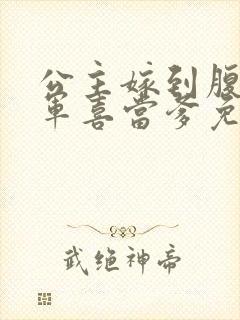 公主嫁到腹
军喜当爹免
武绝神帝